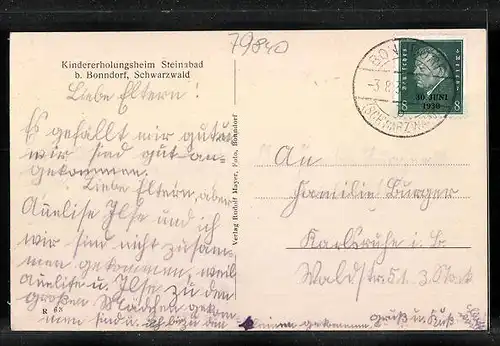 79840
Kindererholungsheim Steinabad
b. Bonndorf, Schwarzwald
Liebe Eltern!
Es gefällt mir gut u.
wir sind gut an-
gekommen.
Liebe Eltern, aber
Anelise Ilse und ich
wir sind nicht zusam-
men gekommen, weil
Anelise u. Ilse zu den
großen Mädchen gekom
men sind u. ich bin zu den
kleinen gekommen. Gruß u. Kuß
R 68
Verlag Rudolf Mayer, Foto, Bonndorf
DEUTSCHES REICH
30. JUNI
1930
8 8
BONNDORF
-3.8.
(SCHWARZWALD)
An
Familie Burger
Karlsruhe i. B.
Waldstr. 51 3. Stock